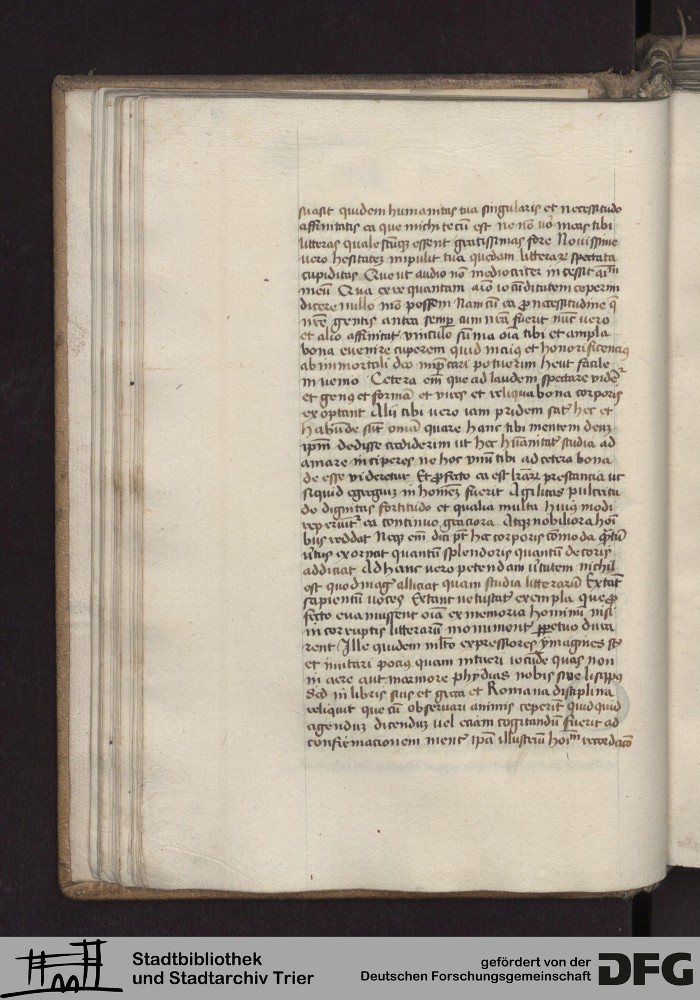 suasit quidem humanitas tua singularis et necessitudo
affinitatis ea que michi tecū est ne nō vō meas tibi
litteras qualescūqȝ essent gratissimas fore Nouissime
vero hesitateȝ impulit tua quedam litterarȝ spectata
cupiditas Que ut audio nō mediocriter incessit aīm
meū Qua ex re quantam aīo iocūditatem ceperim
dicere nullo mō possem Nam cū ea ꝓ necessitudine q̄
nr̄e gentis antea semꝑ cum nr̄a fuerit nūc vero
et alio affinitatꝭ vinculo sūma oīa tibi et ampla
bona euenire cuperem quid maius et honorificencius
ab immortali deo impetrari potuerim heut facile
inuenio Cetera em̄ que ad laudem spectare vident̄
et genus et formā et vires et reliqua bona corporis
exoptant Alii tibi vero iam pridem satꝭ hec et
habūde sūt omīa quare hanc tibi mentem deuȝ
ipm̄ dedisse crediderim ut hec hūanitatꝭ studia ad
amare inciperes ne hoc vnū tibi ad cetera bona
de esse videretur Et ꝓfecto ea est lr̄arȝ prestancia ut
siquid egregiuȝ in homīeȝ fuerit Agilitas pulcritu
do dignitas fortitudo et qualia multa huius modi
reperiunt̄ ea continuo graciora Atqȝ nobiliora hoī
bus reddat Neqȝ em̄ dici pt̄ hec corporis cōmoda q̄ntū
v̄tus exornat quantū splendoris quantū decoris
addiciat Ad hanc vero petendam v̄tutem nichil
est quod magꝭ alliciat quam studia litterarū Extāt
sapientū voces Extant vetustatꝭ exempla que ꝓ
fecto euanuissent oīa ex memoria hominū nisi
incorruptis litterarū monumentꝭ ꝑpetuo dura
rent Ille quidem mlt̄o expressiores ymagines st̄
et imitari pocius quam intueri iocūde quas non
in aere aut marmore phydias nobis siue lisippus
Sed in libris suis et greca et Romana disciplina
reliquit que cū obseruari animis ceperit quidquid
agenduȝ dicenduȝ uel eciam cogitandū fuerit ad
confirmacionem mentꝭ ipā illustriū hoīm recordacō
Stadtbibliothek
und Stadtarchiv Trier
gefördert von der
Deutschen Forschungsgemeinschaft
DFG